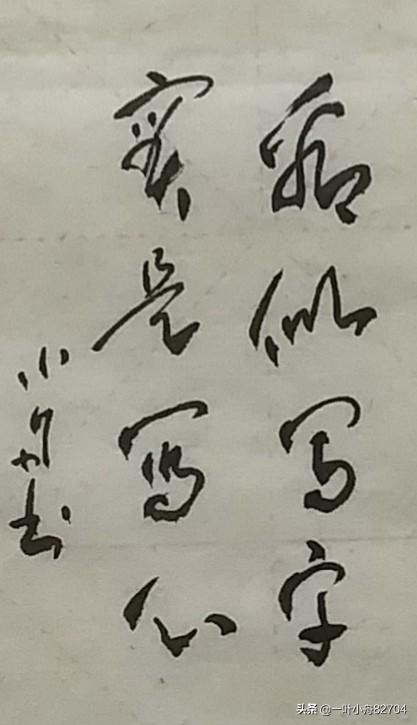 看似写字
实是写心
小舟书
头条 @一叶小舟82704